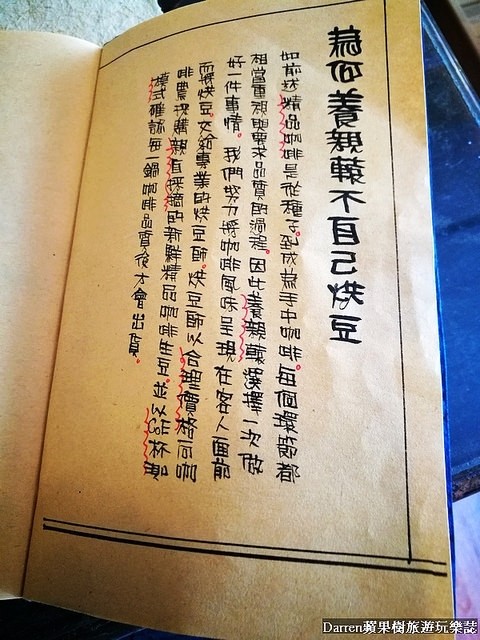 為何養親蔌不自己烘豆
如前述精品咖啡是從種子。到成為手中咖啡。每個環節都
相當重視與要求品質的過程。因此養親蔌選擇一次做
好一件事情。我們努力將咖啡風味呈現在客人面前
而將烘豆。交給專業的烘豆師。烘豆師以合理價格向咖
啡農採購親自採摘的新鮮精品咖啡生豆。並以作杯測
模式確認每一鍋咖啡品質後才會出貨。
Darren蘋果樹旅遊玩樂誌